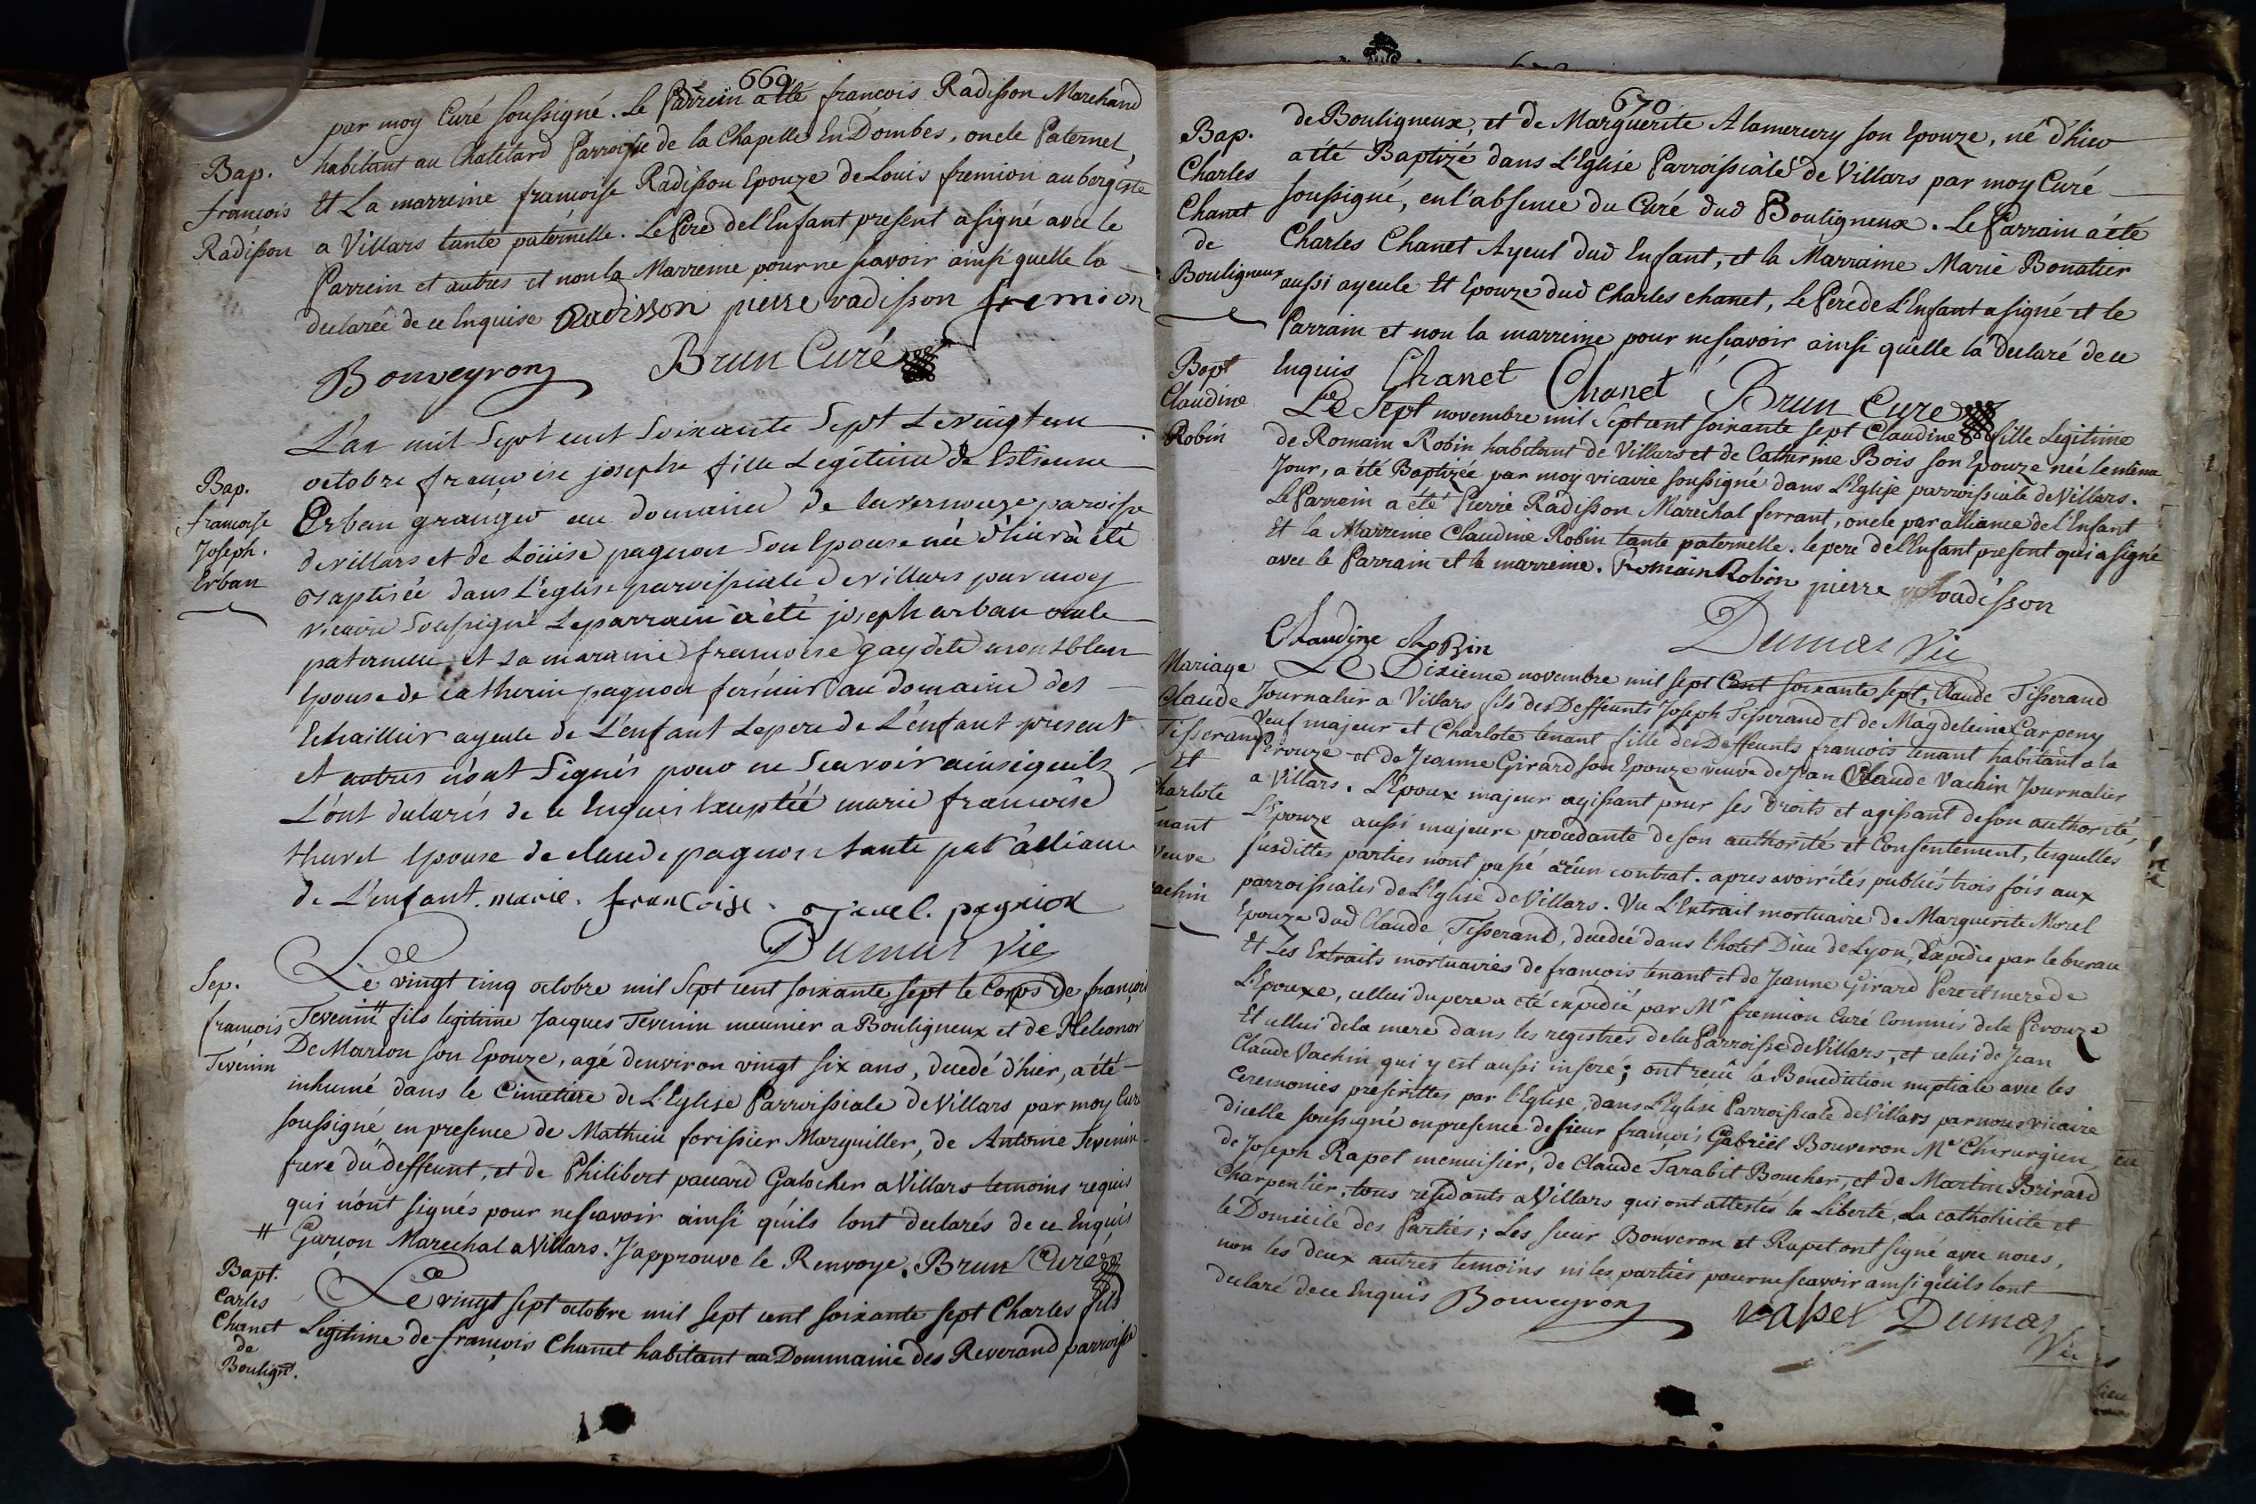 669
par moy Curé soussigné. Le Parrein a été francois Radisson Marchand
Bap.
francois
Radisson
habitant au Chatelard Parroisse de la Chapelle En Dombes, oncle Paternel,
Et La marreine francoise Radisson Epouze de Louis fremion aubergiste
a Villars tante paternelle. Le Pere de l'Enfant present a signé avec le
Parrein et autres et non la Marreine pour ne scavoir ainsi quelle la
declarée de ce Enquise Radisson pierre radisson fremion
Bouveyron Brun Curé
Bap.
francoise
Joseph.
Erban
L'an mil Sept cent Soixante Sept Le vingt un
octobre françoise josephe fille Legitime de Estienne
Erban granger au domaine de parroisse
de villars et de Loüise pagnon Son Epouse née d'hier à été
Baptisée dans L'eglise parroissiale de villars par moy
vicaire Soussigné Le parrain à été joseph erban oncle
paternelle et La maraine francoise gay dete
Epouse de Catherin pagnon fermier au domaine des
Echaillier ayeule de L'enfant Le pere de L'enfant present
et autres n'ont Signés pour ne Scavoir ainsi quils
L'ont declarés de ce Enquis Exceptéé marie francoise
Epouse de claude pagnon tante par alliance
de L'enfant. marie. francoise. pagnion
Dumas Vic
Sep.
francois
Tevenin
Le vingt cinq octobre mil Sept cent soixante sept le Corps de francois
Tevenin # fils legitime Jacques Tevenin meunier a Bouligneux et de Heleonor
De Marion son Epouze, agé denviron vingt six ans, decedé d'hier, a été
inhumé dans le Cimetiere de L'Eglise Parroissiale de Villars par moy Curé
soussigné en presence de Mathieu forissier Marguiller, de Antoine Tevenin
frere du deffeunt, et de Philibert paccard Galocher a Villars temoins requis
qui n'ont signés pour ne scavoir ainsi quils lont declarés de ce Enquis
# Garcon Marechal a Villars. J'approuve le Renvoye. Brun Curé
Bapt.
Carles
Chanet
de
Bouligx.
Le vingt sept octobre mil sept cent soixante sept Charles fils
Legitime de françois Chanet habitant au Dommaine des Reverand parroisse
670
Bap.
Charles
Chanet
de
Bouligneux
de Bouligneux, et de Marguerite Alamercery son Epouze, né d'hier
a été Baptizé dans L'Eglise Parroissiale de Villars par moy Curé
soussigné, en l'absence du Curé dud Bouligneux. Le Parrain a été
Charles Chanet Ayeul dud Enfant, et la Marraine Marie Bonatier
aussi ayeule Et Epouze dud Charles chanet, Le Pere de L'Enfant a signé et le
Parrain et non la marreine pour ne scavoir ainsi quelle la declaré de ce
Enquis Chanet Chanet Brun Curé
Bapt
Claudine
Robin
Le Sept novembre mil Sept cent soixante sept Claudine fille Legitime
de Romain Robin habitant de Villars et de Catherine Bois son Epouze née le même
Jour, a été Baptizée par moy vicaire soussigné dans L'Eglise parroissiale de Villars.
Le Parrein a été Pierre Radisson Marechal ferrant, oncle par alliance de l'Enfant
Et la Marreine Claudine Robin tante paternelle. le pere de l'Enfant present qui a signé
avec le Parrain et la marreine. Romain Robin pierre radisson
Claudine RoBin Dumas Vic
Mariage
Claude
Tisserand
Et
Charlote
tenant
veuve
Vachin
Le Dixieme novembre mil sept Cent soixante sept, Claude Tisserand
Journalier a Villars fils des Deffeunts Joseph Tisserand et de Magdeleine Carpeny
Veuf majeur et Charlote tenant fille des Deffeunts francois tenant habitant a la
Perouze et de Jeanne Girard son Epouze veuve de Jean Claude Vachin Journalier
a Villars. L'Epoux majeur agissant pour ses Droits et agissant de son authorité,
L'Epouze aussi majeure procedante de son authorité et Consentement, lesquelles
susdittes parties n'ont passé aucun contrat. apres avoir étés publiés trois fois aux
parroissiales de L'Eglise de Villars. Vu L'Extrait mortuaire de Marguerite Morel
Epouze dud Claude Tisserand, decedée dans l'hotel Dieu de Lyon, Expedie par le bureau
Et Les Extraits mortuaires de francois tenant et de Jeanne Girard Pere et mere de
L'Epouxe, cellui du pere a été expedié par Mr fremion Curé Commis de la Perouze
Et cellui de la mere dans les registres de la Parroisse de Villars, et celui de Jean
Claude Vachin qui y est aussi inseré; ont recû la Benediction nuptiale avec les
Ceremonies prescrittes par l'Eglise, dans L'Eglise Parroissiale de Villars par nous vicaire
dicelle soussigné en presence de sieur françois Gabriël Bouveron Me Chirurgien
de Joseph Rapet menuisier, de Claude Tarabit Boucher, et de Martin Brirard
Charpentier, tous residants a Villars qui ont attestés la Liberté, La catholicité et
le Domicile des Parties; Les sieur Bouveron et Rapet ont signé avec nous,
non les deux autres temoins ni les parties pour ne scavoir ainsi quils lont
declaré de ce Enquis Bouveyron rapet Dumas
Vic